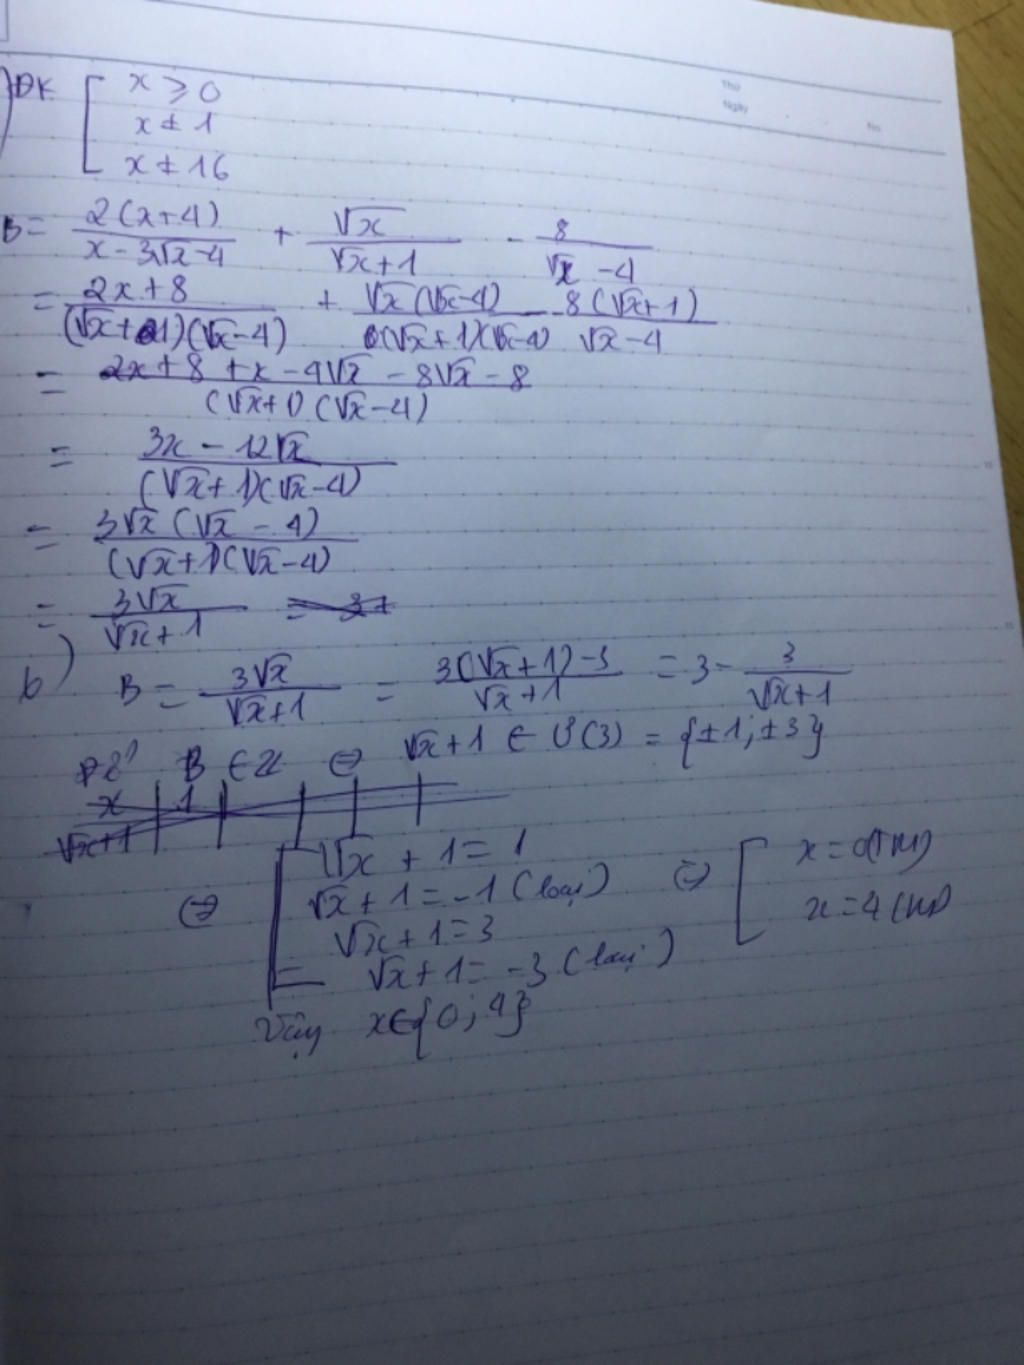 Thứ
Ngày
No
) ĐK [ x ≥ 0
x ≠ 1
x ≠ 16
B = 2(x+4) / (x - 3√x - 4) + √x / (√x + 1) - 8 / (√x - 4)
= (2x + 8) / ((√x + 1)(√x - 4)) + √x(√x - 4) / ((√x + 1)(√x - 4)) - 8(√x + 1) / (√x - 4)
= (2x + 8 + x - 4√x - 8√x - 8) / ((√x + 1)(√x - 4))
= (3x - 12√x) / ((√x + 1)(√x - 4))
= 3√x(√x - 4) / ((√x + 1)(√x - 4))
= 3√x / (√x + 1)
b) B = 3√x / (√x + 1) = (3(√x + 1) - 3) / (√x + 1) = 3 - 3 / (√x + 1)
B ∈ Z ⇔ √x + 1 ∈ Ư(3) = {±1; ±3}
x | 1
√x + 1
⇔ [ √x + 1 = 1
√x + 1 = -1 (loại)
√x + 1 = 3
√x + 1 = -3 (loại)
⇔ [ x = 0 (TM)
x = 4 (TM)
Vậy x ∈ {0; 4}